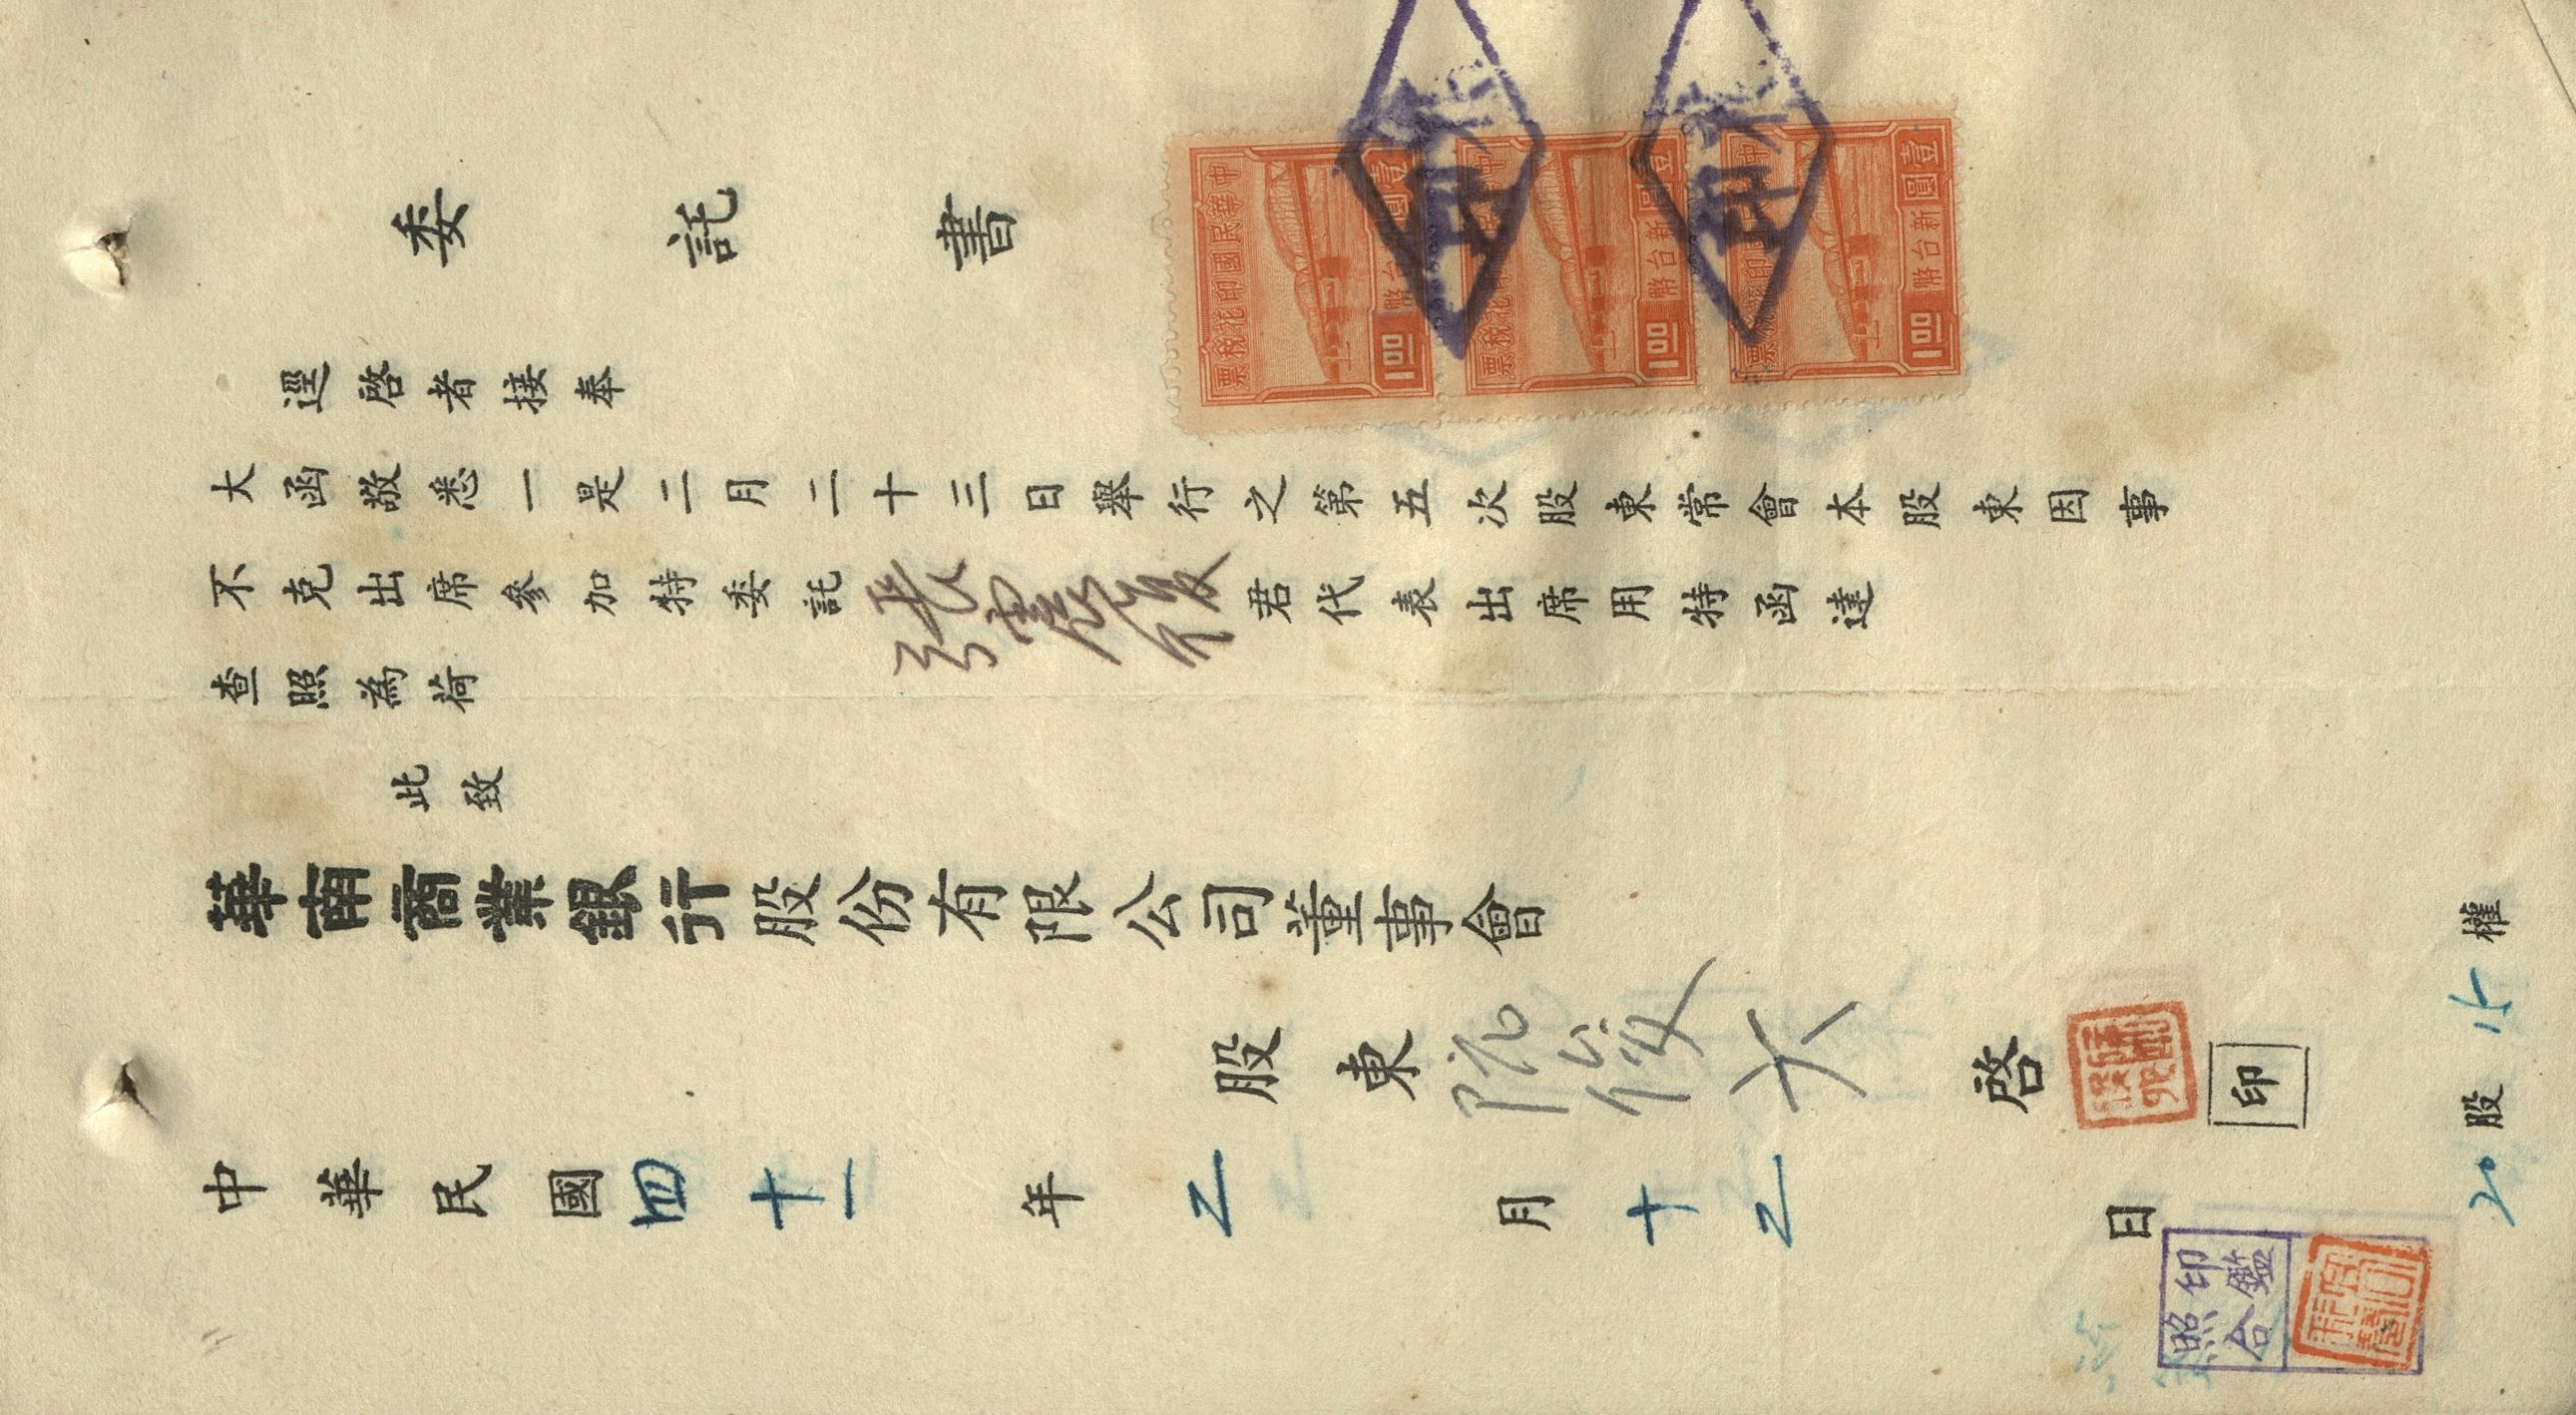 委託書
逕啓者接奉
大函敬悉一是二月二十三日舉行之第五次股東常會本股東因事
不克出席參加特委託張震復君代表出席用特函達
查照為荷
此致
華南商業銀行股份有限公司董事會
股東陀俊夫啓
印
中華民國四十一年2月十2日
20股15權
印鑑
照合
中華民國印花稅票
壹圓
新台幣
1.00
壹圓
新台幣
1.00
壹圓
新台幣
1.00